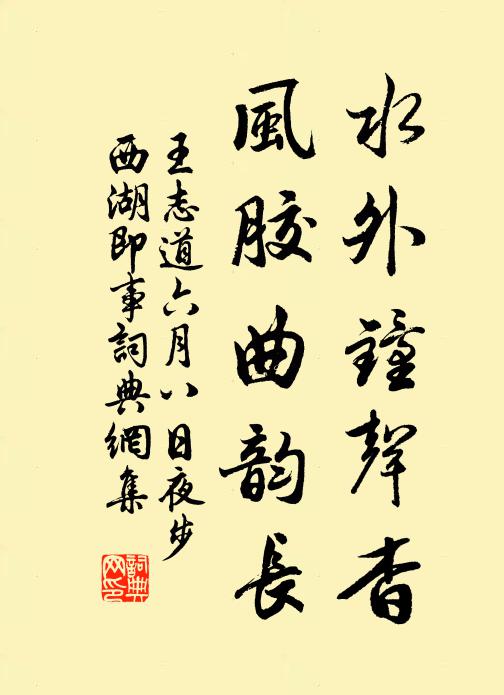 水外鐘聲杳
風胶曲韵長
王志道六月八日夜步
西湖即事詞典網集
詞典网印